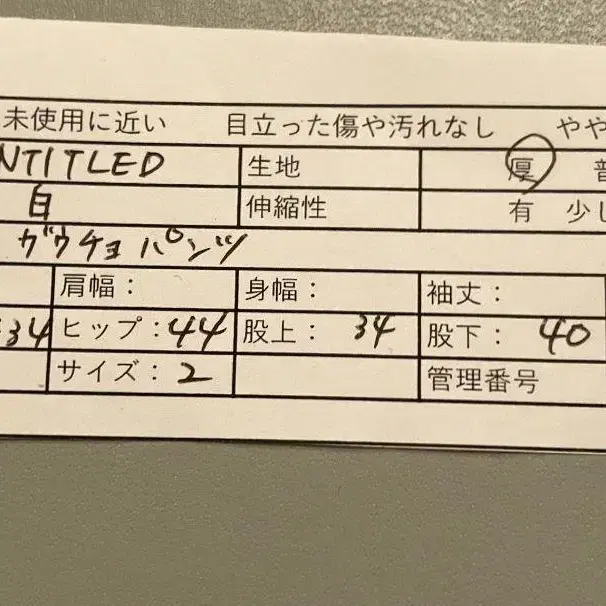 未使用に近い 目立った傷や汚れなし やや
NTITLED 生地 厚 普
白 伸縮性 有 少し
ガウチョパンツ
肩幅： 身幅： 袖丈：
34 ヒップ：44 股上： 34 股下： 40
サイズ：2 管理番号